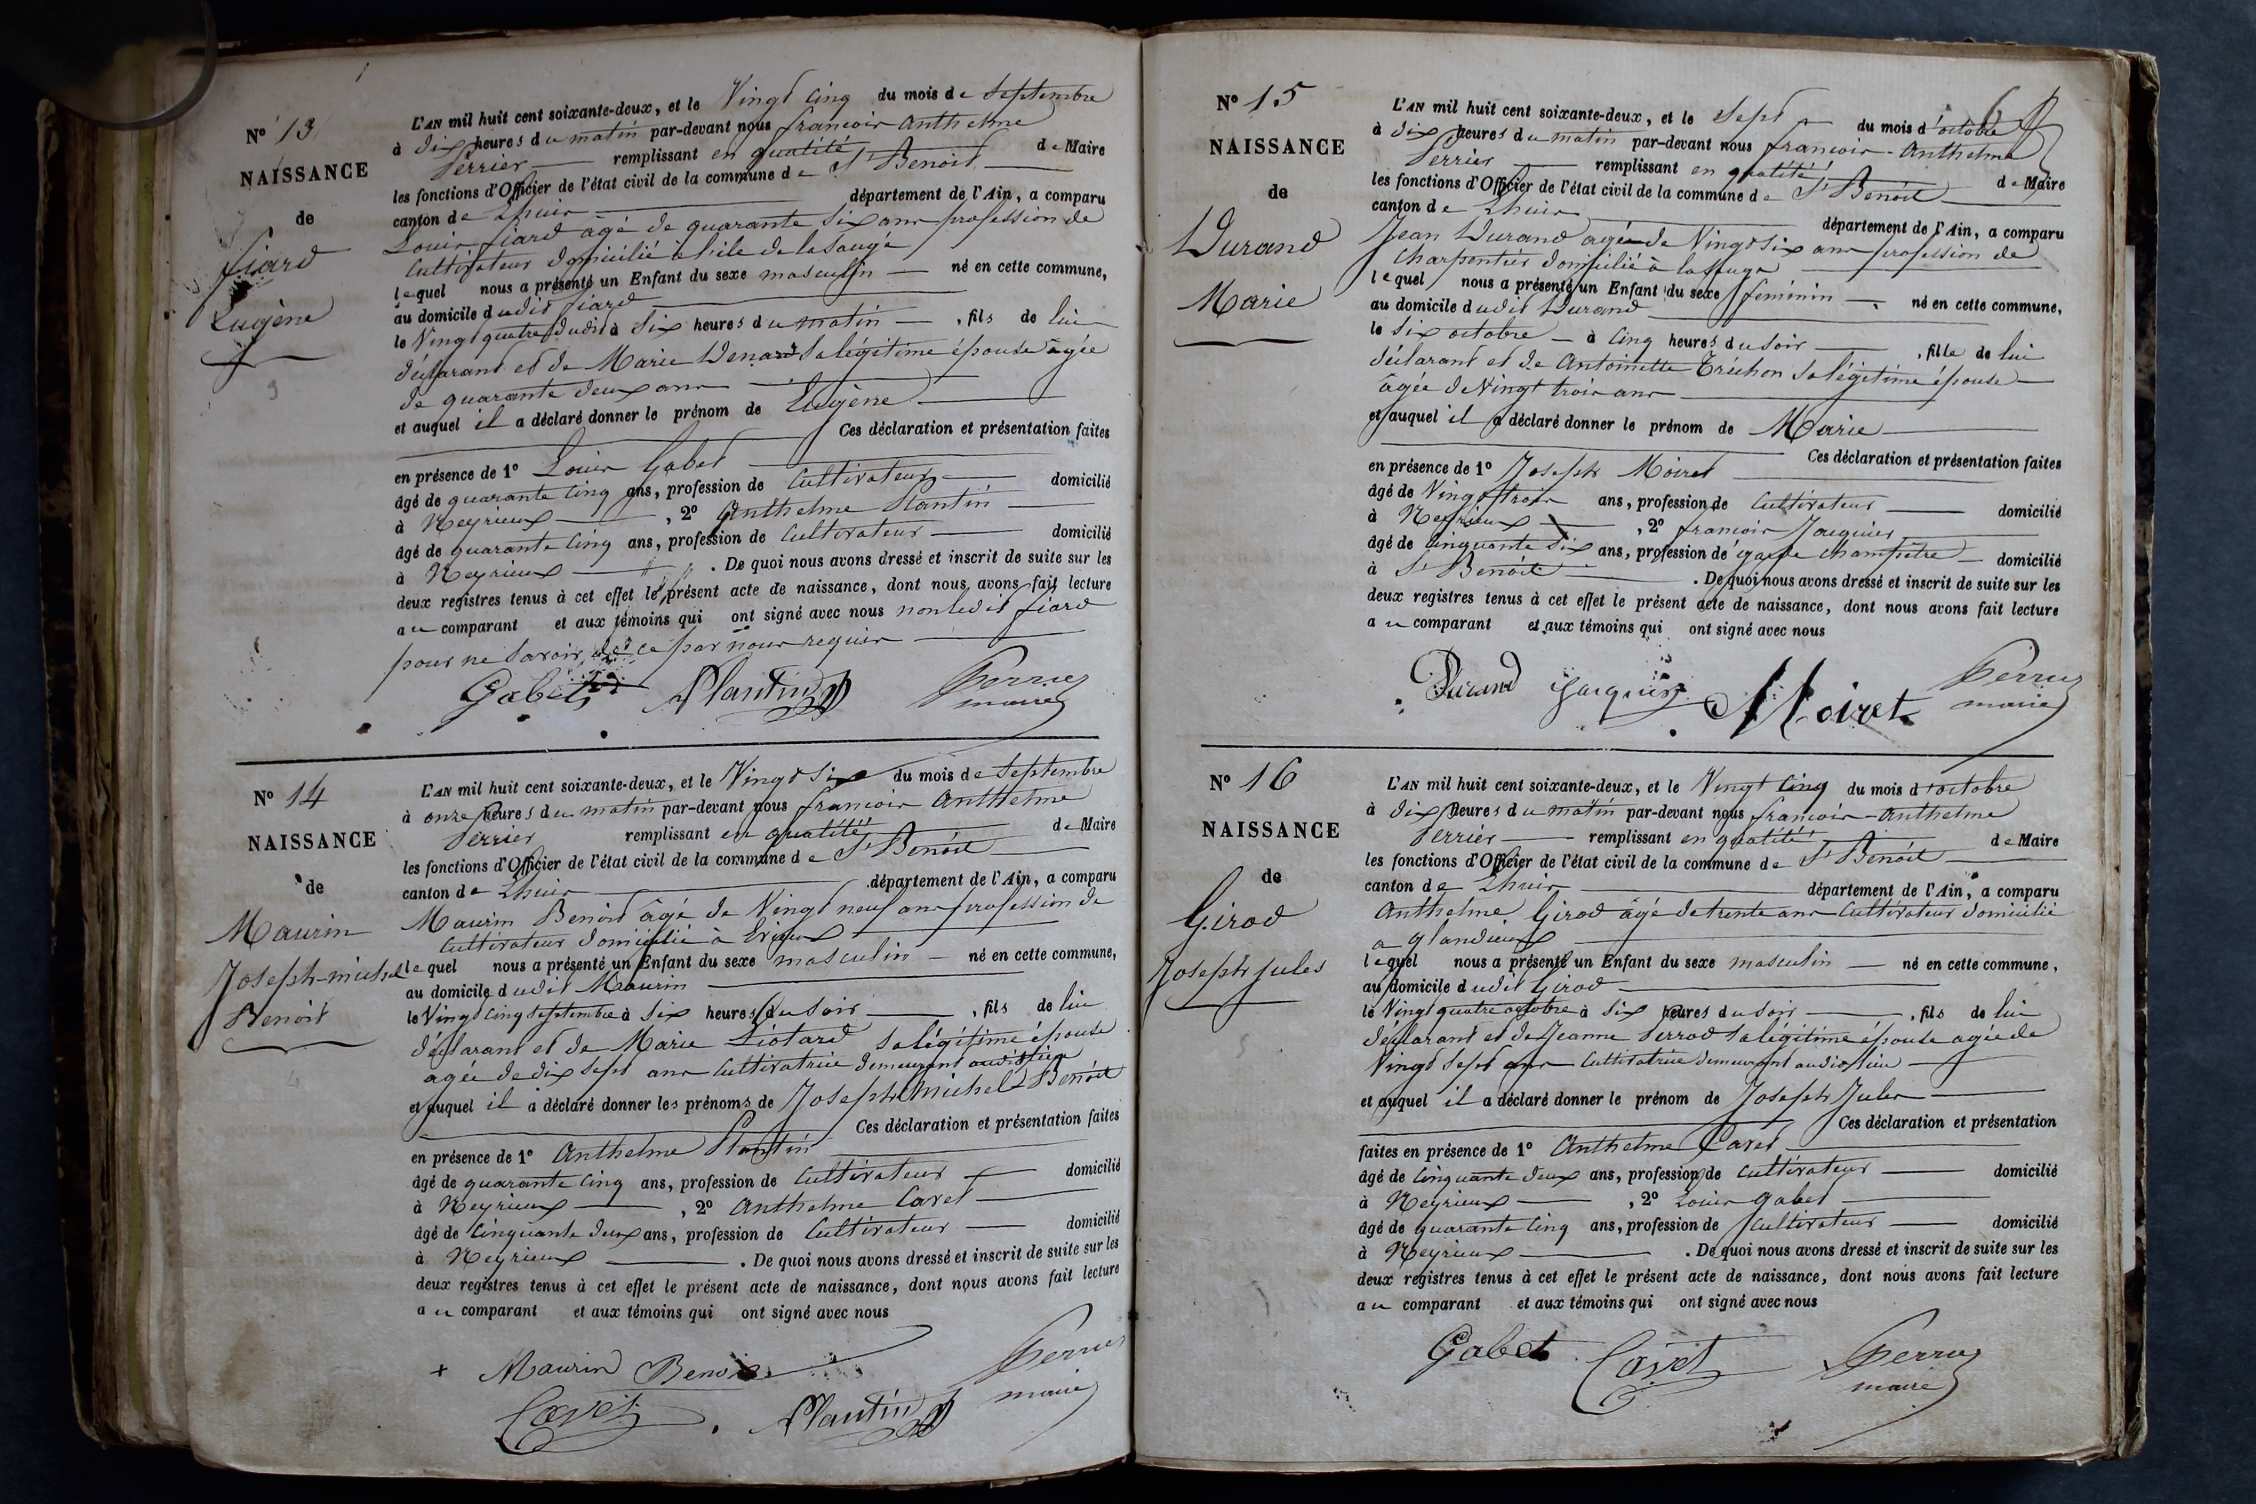 N° 13
NAISSANCE
de
Fiard
Eugène
L'AN mil huit cent soixante-deux, et le Vingt cinq du mois de Septembre
à dix heures du matin par-devant nous françois Anthelme
Perrier remplissant en qualité de Maire
les fonctions d'Officier de l'état civil de la commune de St Benoit
canton de Lhuis département de l'Ain, a comparu
Louis fiard âgé de quarante six ans profession de
Cultivateur domicilié à l'ile de la Sauge
lequel nous a présenté un Enfant du sexe masculin né en cette commune,
au domicile dudit fiard
le Vingt quatre dudit à Six heures du matin , fils de lui
déclarant et de Marie Denard Sa légitime épouse âgée
de quarante deux ans
et auquel il a déclaré donner le prénom de Eugène
Ces déclaration et présentation faites
en présence de 1° Louis Gabet
âgé de quarante cinq ans, profession de Cultivateur domicilié
à Neyrieux , 2° Anthelme Plantin
âgé de quarante cinq ans, profession de Cultivateur domicilié
à Neyrieux . De quoi nous avons dressé et inscrit de suite sur les
deux registres tenus à cet effet le présent acte de naissance, dont nous avons fait lecture
au comparant et aux témoins qui ont signé avec nous non ledit fiard
pour ne Savoir de ce par nous requis
Gabet Plantin Perrier
maire
N° 14
NAISSANCE
de
Maurin
Joseph-michel
Benoit
L'AN mil huit cent soixante-deux, et le Vingt Six du mois de Septembre
à onze heures du matin par-devant nous françois Anthelme
Perrier remplissant en qualité de Maire
les fonctions d'Officier de l'état civil de la commune de St Benoit
canton de Lhuis département de l'Ain, a comparu
Maurin Benoit âgé de Vingt neuf ans profession de
Cultivateur domicilié à Evieux
lequel nous a présenté un Enfant du sexe masculin né en cette commune,
au domicile dudit Maurin
le Vingt cinq Septembre à Six heures du Soir , fils de lui
déclarant et de Marie Liotard Sa légitime épouse
agée de dix Sept ans Cultivatrice demeurant audit lieu
et auquel il a déclaré donner les prénoms de Joseph Michel Benoit
Ces déclaration et présentation faites
en présence de 1° Anthelme Plantin
âgé de quarante cinq ans, profession de Cultivateur domicilié
à Neyrieux , 2° Anthelme Cavet
âgé de Cinquante deux ans, profession de Cultivateur domicilié
à Neyrieux . De quoi nous avons dressé et inscrit de suite sur les
deux registres tenus à cet effet le présent acte de naissance, dont nous avons fait lecture
au comparant et aux témoins qui ont signé avec nous
+ Maurin Benoit Perrier
maire
Cavet Plantin
6
N° 15
NAISSANCE
de
Durand
Marie
L'AN mil huit cent soixante-deux, et le Sept du mois d'octobre
à dix heures du matin par-devant nous françois-Anthelme
Perrier remplissant en qualité de Maire
les fonctions d'Officier de l'état civil de la commune de St Benoit
canton de Lhuis département de l'Ain, a comparu
Jean Durand agé de Vingt Six ans profession de
Charpentier domicilié à la Sauge
lequel nous a présenté un Enfant du sexe feminin né en cette commune,
au domicile dudit Durand
le Six octobre à Cinq heures du Soir , fille de lui
déclarant et de Antoinette Tréchon Sa légitime épouse
âgée de Vingt trois ans
et auquel il a déclaré donner le prénom de Marie
Ces déclaration et présentation faites
en présence de 1° Joseph Moiret
âgé de Vingt trois ans, profession de Cultivateur domicilié
à Neyrieux , 2° françois Jacquier
âgé de Cinquante Six ans, profession de garde Champêtre domicilié
à St Benoit . De quoi nous avons dressé et inscrit de suite sur les
deux registres tenus à cet effet le présent acte de naissance, dont nous avons fait lecture
au comparant et aux témoins qui ont signé avec nous
Durand Jacquier Moiret Perrier
maire
N° 16
NAISSANCE
de
Girod
Joseph Jules
L'AN mil huit cent soixante-deux, et le Vingt Cinq du mois d'octobre
à dix heures du matin par-devant nous françois-Anthelme
Perrier remplissant en qualité de Maire
les fonctions d'Officier de l'état civil de la commune de St Benoit
canton de Lhuis département de l'Ain, a comparu
Anthelme Girod âgé de trente ans Cultivateur domicilié
a glandieux
lequel nous a présenté un Enfant du sexe masculin né en cette commune,
au domicile dudit Girod
le Vingt quatre octobre à Six heures du Soir , fils de lui
déclarant et de Jeanne Perrod Sa légitime épouse agée de
Vingt Sept ans Cultivatrice demeurant audit lieu
et auquel il a déclaré donner le prénom de Joseph Jules
Ces déclaration et présentation
faites en présence de 1° Anthelme Cavet
âgé de Cinquante deux ans, profession de Cultivateur domicilié
à Neyrieux , 2° Louis Gabet
âgé de quarante Cinq ans, profession de Cultivateur domicilié
à Neyrieux . De quoi nous avons dressé et inscrit de suite sur les
deux registres tenus à cet effet le présent acte de naissance, dont nous avons fait lecture
au comparant et aux témoins qui ont signé avec nous
Gabet Cavet Perrier
maire